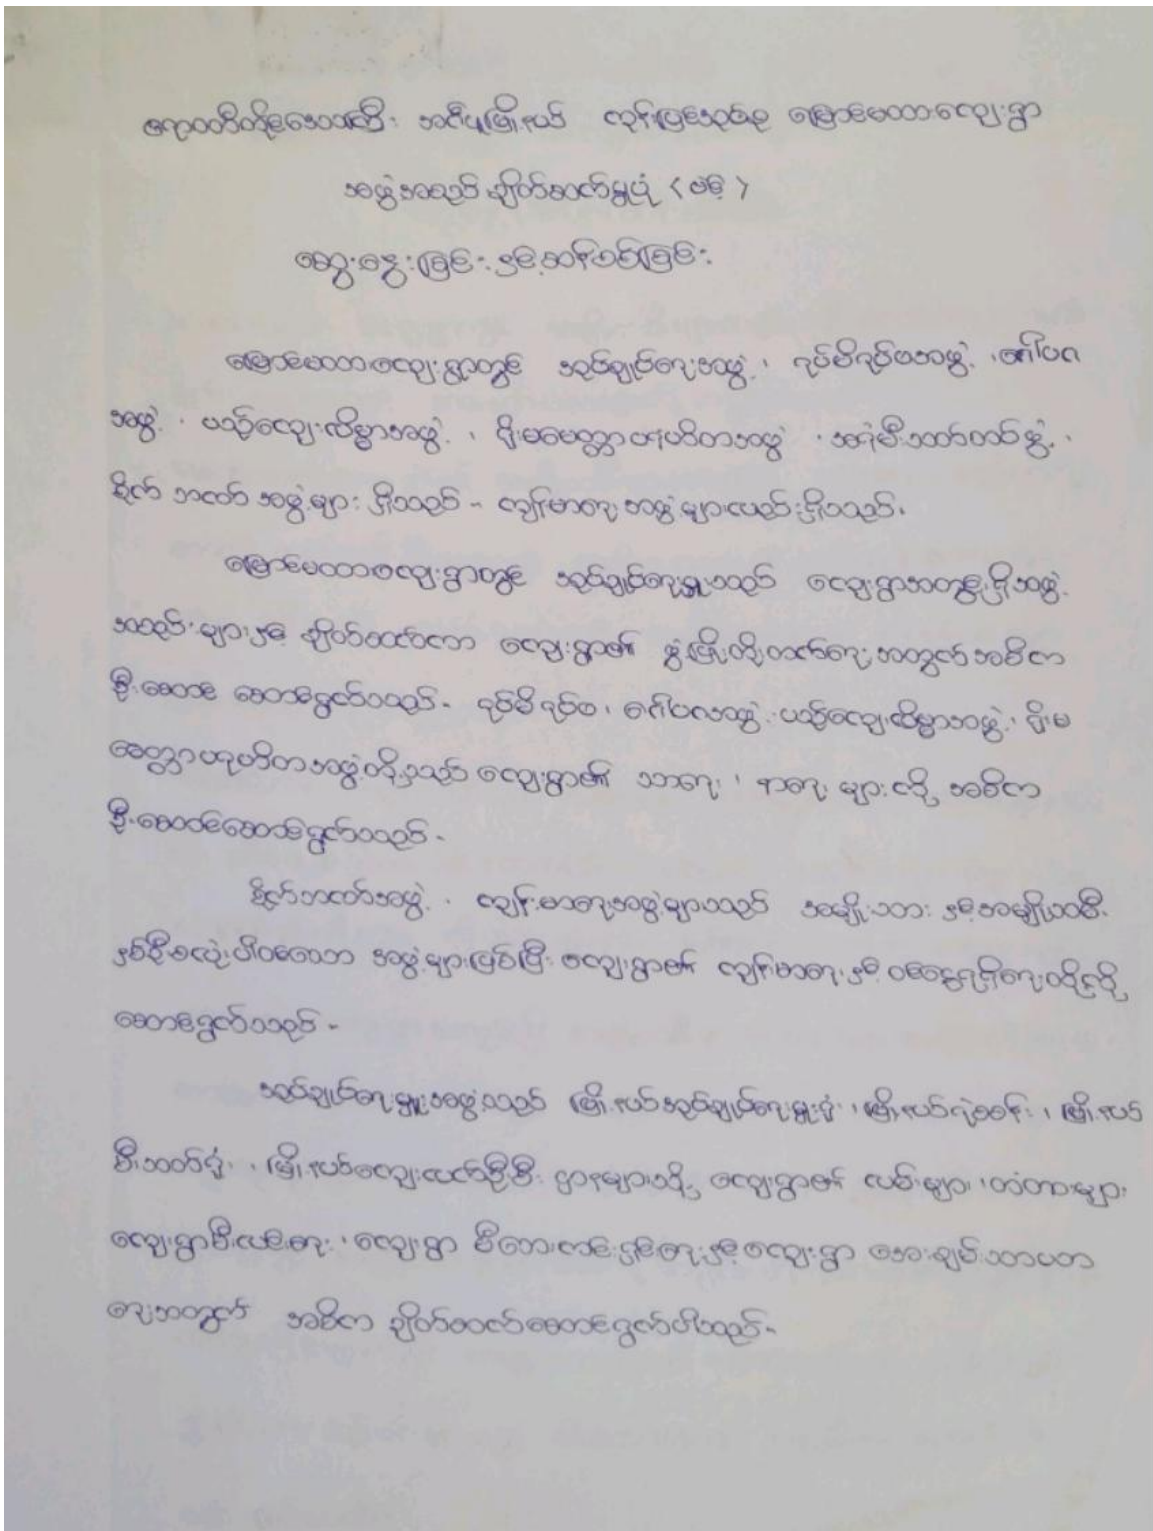 ဧရာဝတီတိုင်းဒေသကြီး အင်္ဂပူမြို့နယ် ကုန်းပြင်အုပ်စု မြောင်မထာကျေးရွာ
အဖွဲ့အစည်း ချိတ်ဆက်မှုပုံ (ဗင်း)
ဆွေးနွေးခြင်း နှင့်ဆန်းစစ်ခြင်း
မြောင်မထာကျေးရွာတွင် အုပ်ချုပ်ရေးအဖွဲ့၊ ရပ်မိရပ်ဖအဖွဲ့၊ ဂေါပက
အဖွဲ့၊ ပညာ့ကျေးလိမ္မာအဖွဲ့၊ ဗြဟ္မစိုရ်မေတ္တာပရဟိတအဖွဲ့၊ အရံမီးသတ်တပ်ဖွဲ့၊
စိုက် ဘဏ် အဖွဲ့များ ရှိသည်။ ကျန်းမာရေးအဖွဲ့များလည်းရှိသည်။
မြောင်မထာကျေးရွာတွင် အုပ်ချုပ်ရေးမှူးသည် ကျေးရွာအတွင်းရှိအဖွဲ့
အစည်းများနှင့် ချိတ်ဆက်ကာ ကျေးရွာ၏ ဖွံ့ဖြိုးတိုးတက်ရေးအတွက် အဓိက
ဦးဆောင် ဆောင်ရွက်သည်။ ရပ်မိရပ်ဖ၊ ဂေါပကအဖွဲ့
မေတ္တာပရဟိတအဖွဲ့တို့သည် ကျေးရွာ၏ သာရေး၊ နာရေး များကို အဓိက
ဦးဆောင်ဆောင်ရွက်သည်။
စိုက်ဘဏ်အဖွဲ့၊ ကျန်းမာရေးအဖွဲ့များသည် အမျိုးသား နှင့်အမျိုးသမီး
နှစ်ဦးစလုံးပါဝင်သော အဖွဲ့များဖြစ်ပြီး ကျေးရွာ၏ ကျန်းမာရေးနှင့် ဝင်ငွေရရှိရေးတို့ကို
ဆောင်ရွက်သည်။
အုပ်ချုပ်ရေးမှူးအဖွဲ့သည် မြို့နယ်အုပ်ချုပ်ရေးမှူးရုံး၊ မြို့နယ်ရဲစခန်း၊ မြို့နယ်
မီးသတ်ရုံး၊ မြို့နယ်ကျေးလက်ဦးစီး ဌာနများသို့ ကျေးရွာ၏ လမ်းများ၊ တံတားများ
ကျေးရွာမီးလင်းရေး၊ ကျေးရွာ မီးဘေးကင်းရှင်းရေးနှင့် ကျေးရွာ အေးချမ်းသာယာ
ရေးအတွက် အဓိက ချိတ်ဆက်ဆောင်ရွက်ပါသည်။